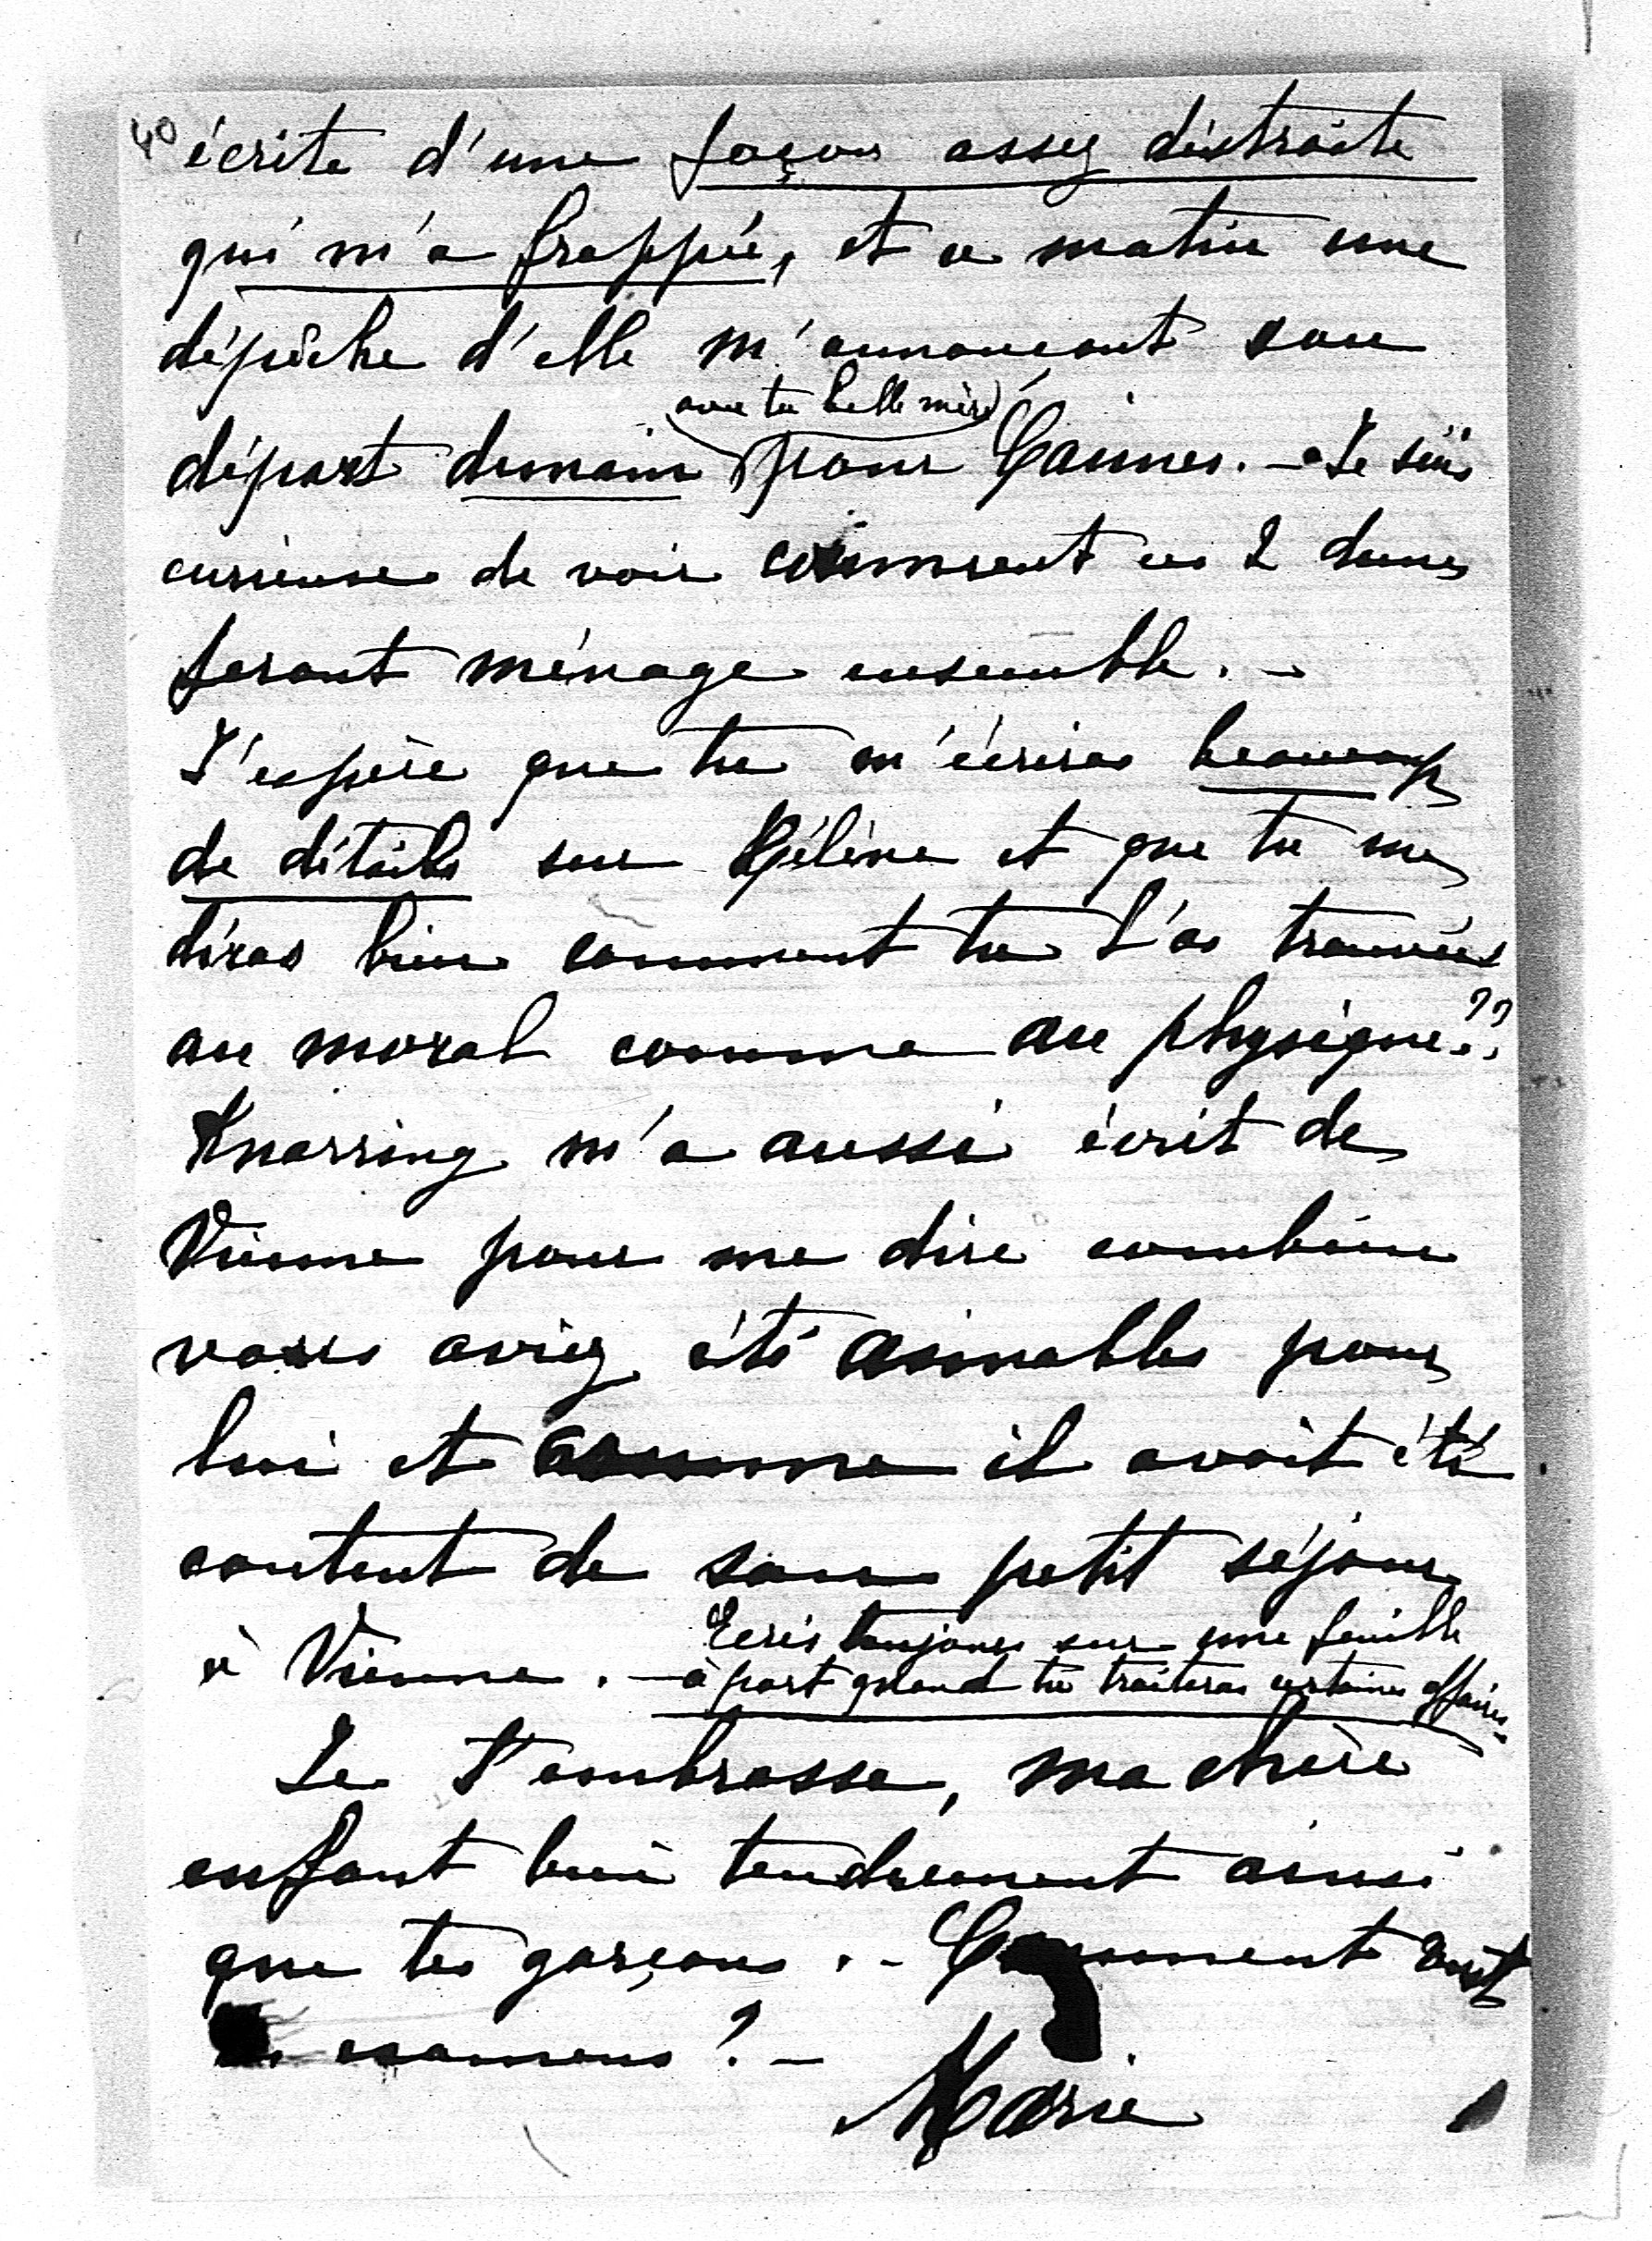 40
écrite d'une façon assez distraite
qui m'a frappée, et ce matin une
dépêche d'elle m'annoncant son
(avec ta belle mère)
départ demain pour Cannes. - Je suis
curieuse de voir comment ces 2 dames
feront ménage ensemble. -
J'espère que tu m'écriras beaucoup
de détails sur Hélène et que tu me
diras bien comment tu l'as trouvée
au moral comme au physique??
Knorring m'a aussi écrit de
Vienne pour me dire combien
vous aviez été aimables pour
lui et comme il avait été
content de son petit séjour
à Vienne. -
Ecris toujours sur une feuille
à part quand tu traiteras certaines affaires.
Je t'embrasse, ma chère
enfant bien tendrement ainsi
que tes garçons. - Comment vont
examens? -
Marie